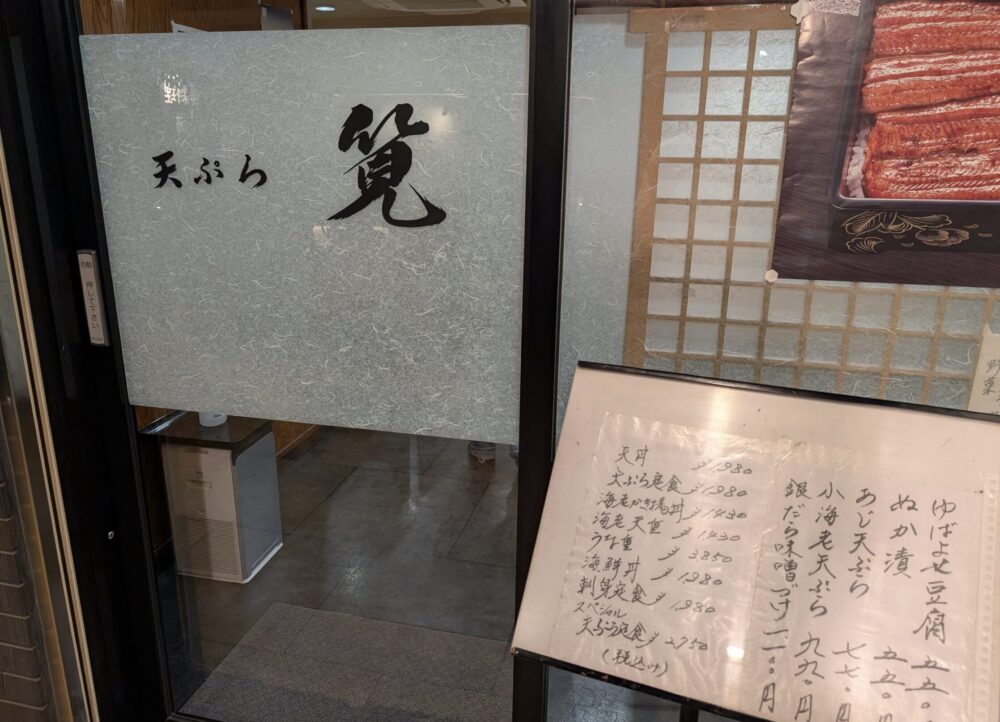 天ぷら
筧
自動
押して下さい
天丼 ¥1,980
天ぷら定食 ¥1,980
海老かき揚丼 ¥1,430
海老天重 ¥1,430
うな重 ¥3850
海鮮丼 ¥1,980
刺身定食 ¥1,980
スペシャル
天ぷら定食 ¥2,750
(税込み)
ゆばよせ豆腐 五五〇
ぬか漬 五五〇円
あじ天ぷら 七七〇円
小海老天ぷら 九九〇円
銀だら味噌づけ 円
野菜